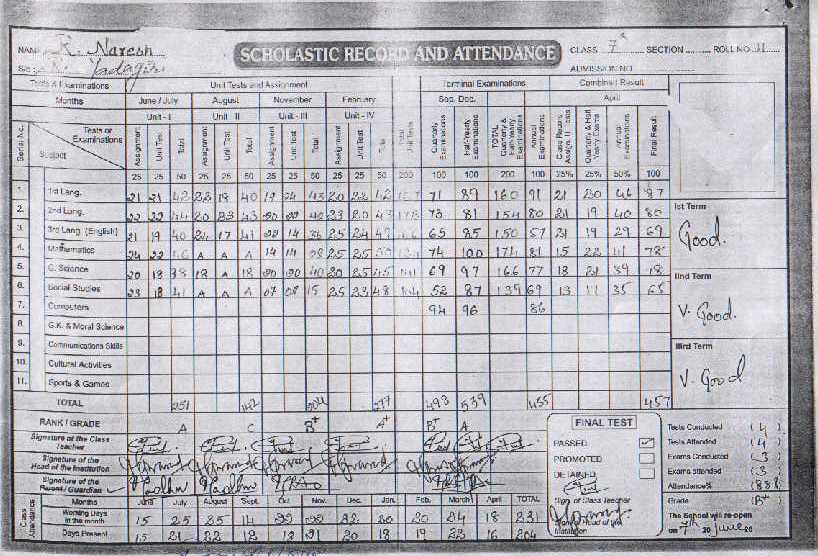 NAME R. Naresh
SCHOLASTIC RECORD AND ATTENDANCE
CLASS 7 SECTION ROLL NO. 11
ADMISSION NO.
Tests & Examinations Unit Tests and Assignment Terminal Examinations Combined Result
Months June / July August November February Sep. Dec. April
Unit - I Unit - II Unit - III Unit - IV
Serial No. Tests or Examinations Subject
Assignment Unit Test Total Assignment Unit Test Total Assignment Unit Test Total Assignment Unit Test Total Total Unit Tests Quarterly Examinations Half-Yearly Examinations TOTAL Quarterly & Half-Yearly Examinations Annual Examinations Quarterly & Half Yearly Exams Annual Examinations Final Result
25 25 50 25 25 50 25 25 50 25 25 50 200 100 100 200 100 25% 25% 50% 100
1. 1st Lang. 21 21 42 22 18 40 19 24 43 20 22 42 71 89 160 91 21 20 46 87
2. 2nd Lang. 22 22 44 20 23 43 20 20 40 23 20 43 73 81 154 80 21 19 40 80
3. 3rd Lang. (English) 21 19 40 24 17 41 22 14 36 25 24 49 65 85 150 57 21 19 29 69
4. Mathematics 24 22 A A A 14 14 28 25 25 50 74 100 174 81 15 22 41 78
5. G. Science 20 18 38 18 A 18 20 20 40 20 25 45 69 97 166 77 18 21 39 78
6. Social Studies 23 18 41 A A A 07 08 15 25 23 48 104 52 87 139 69 13 35 65
7. Computers 94 96 86
8. G.K. & Moral Science
9. Communications Skills
10. Cultural Activities
11. Sports & Games
TOTAL 251 142 204 277 493 539 455 457
RANK / GRADE A C B+ A+ B+ A
Ist Term
Good.
IInd Term
V. Good.
IIIrd Term
V. Good
Signature of the Class Teacher
Signature of the Head of the Institution
Signature of the Parent / Guardian
FINAL TEST
PASSED
PROMOTED
DETAINED
Sign. of Class Teacher
Tests Conducted (4)
Tests Attended (4)
Exams Conducted (3)
Exams attended (3)
Attendance% (88%)
Grade (B+)
The School will re-open
on 7th June 20
Class Attendance
Months June July August Sept. Oct. Nov. Dec. Jan. Feb. March April TOTAL
Working Days in the month 15 25 25 14 22 22 22 20 20 24 18 231
Days Present 15 21 22 12 13 21 20 18 19 22 16 204